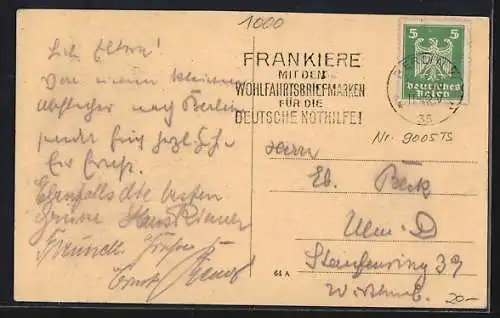 1000
Lb. Eltern!
Von meinem kleinen
Abstecher nach Berlin
sendet Euch herzliche
Ebenfalls die besten
Grüsse Hans
Ernst
FRANKIERE
MIT DEN
WOHLFAHRTSBRIEFMARKEN
FÜR DIE
DEUTSCHE NOTHILFE!
5 5
Deutsches
Reich
BERLIN
35
Nr. 9005 TS
Herrn
Eb. Beck
Ulm-D
Staufenring 39
Württemb.
44 A
20-